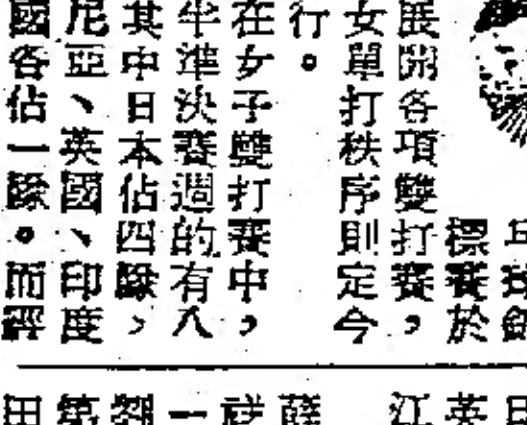 標賽於
展開各項雙打賽，
女單打秩序則定今
行。
在女子雙打賽中，
半準決賽週的有八
其中日本佔四隊，
尼亞、英國、印度
國各佔一隊。而經
日
英
江
薛
一
劉
第
田